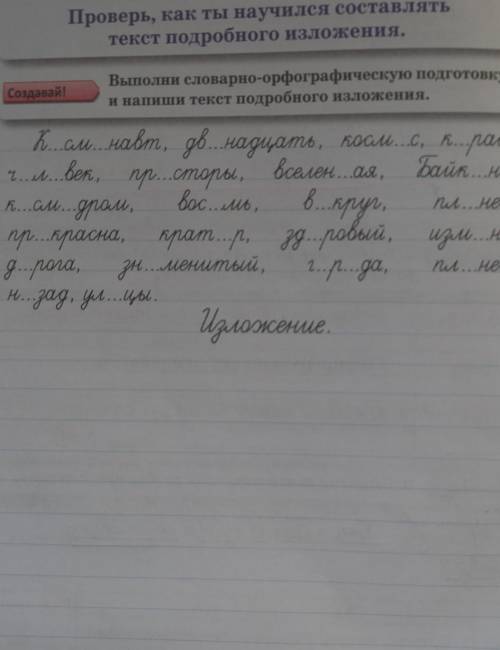 Проверь, как ты научился составлять
текст подробного изложения.
Создавай!
Выполни словарно-орфографическую подготовку
и напиши текст подробного изложения.
К...см...навт, дв...надцать, косм...с, к...ра
ч...л...век, пр...сторы, вселен...ая, Байк...н
к...см...дром, вос...мь, в...круг, пл...не
пр...красна, крат...р, зд...ровый, изм...н
д...рога, зн...менитый, г...р...да, пл...не
н...зад, ул...цы.
Изложение.